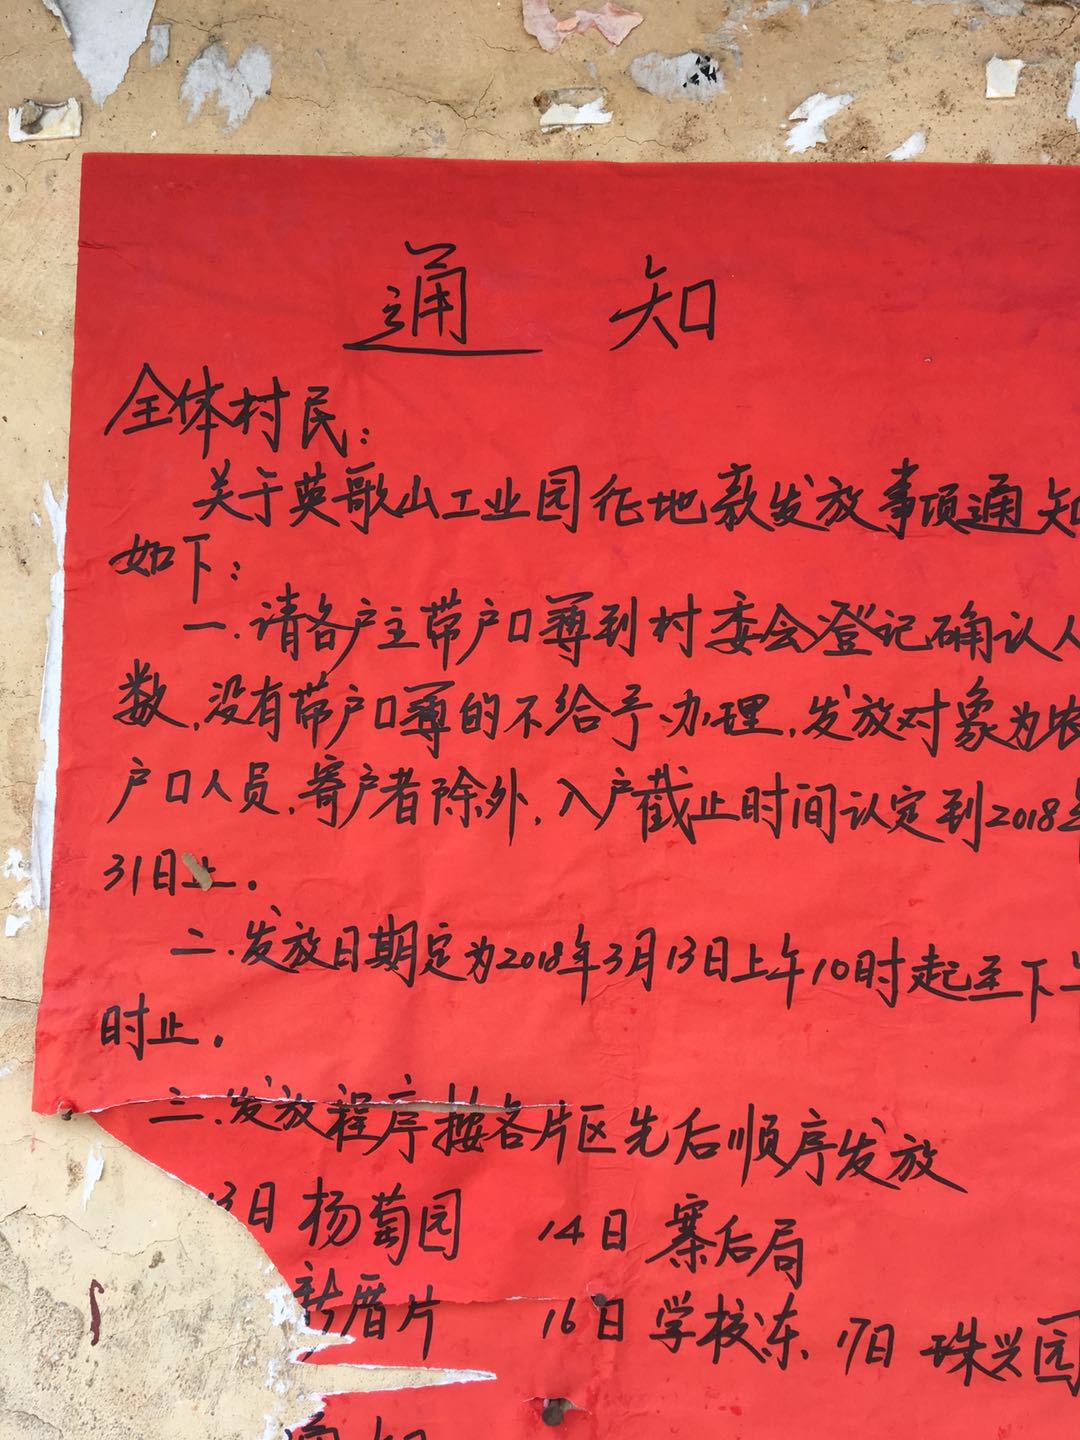 通 知
全体村民：
关于英歌山工业园征地款发放事项通知
如下：
一.请各户主带户口簿到村委会登记确认人
数,没有带户口簿的不给予办理,发放对象为农
户口人员,寄户者除外,入户截止时间认定到2018年
31日止.
二.发放日期定为2018年3月13日上午10时起至下午
时止.
三.发放程序按各片区先后顺序发放
13日 杨萄园 14日 寨后局
新厝片 16日 学校东 17日 珠兴园
通知